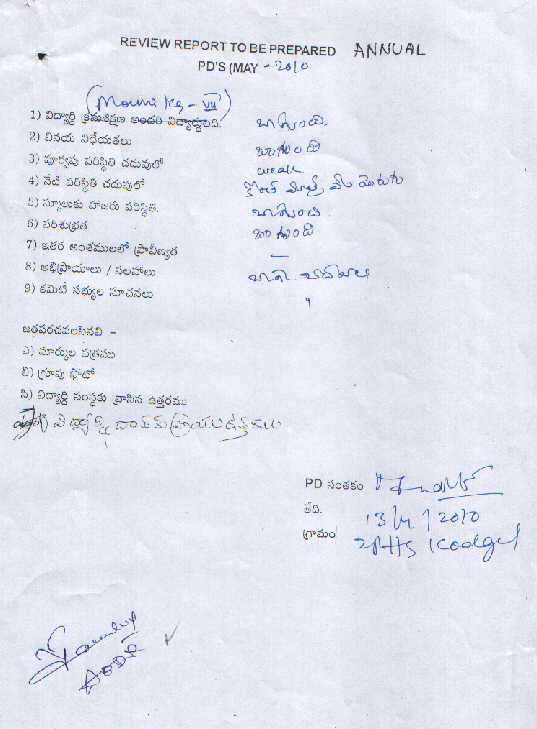 REVIEW REPORT TO BE PREPARED ANNUAL
PD'S (MAY - 2010
(Mounika - VII)
1) విద్యార్థి క్రమశిక్షణ అందరి విద్యార్థులది. బాగుంది.
2) వినయ విధేయతలు బాగుంది
3) పూర్వపు పరిస్థితి చదువులో weak
4) నేటి పరిస్థితి చదువులో
5) స్కూలుకు హాజరు పరిస్థితి. బాగుంది.
6) పరిశుభ్రత బాగుంది
7) ఇతర అంశములలో ప్రావీణ్యత —
8) అభిప్రాయాలు / సలహాలు బాగా చదవాలి
9) కమిటీ సభ్యుల సూచనలు
జతపరచవలసినవి -
ఎ) మార్కుల పత్రము
బి) గ్రూపు ఫోటో
సి) విద్యార్థి సంస్థకు వ్రాసిన ఉత్తరము
PD సంతకం
తేది. 13/4/2010
గ్రామం ZPHS Kodgal